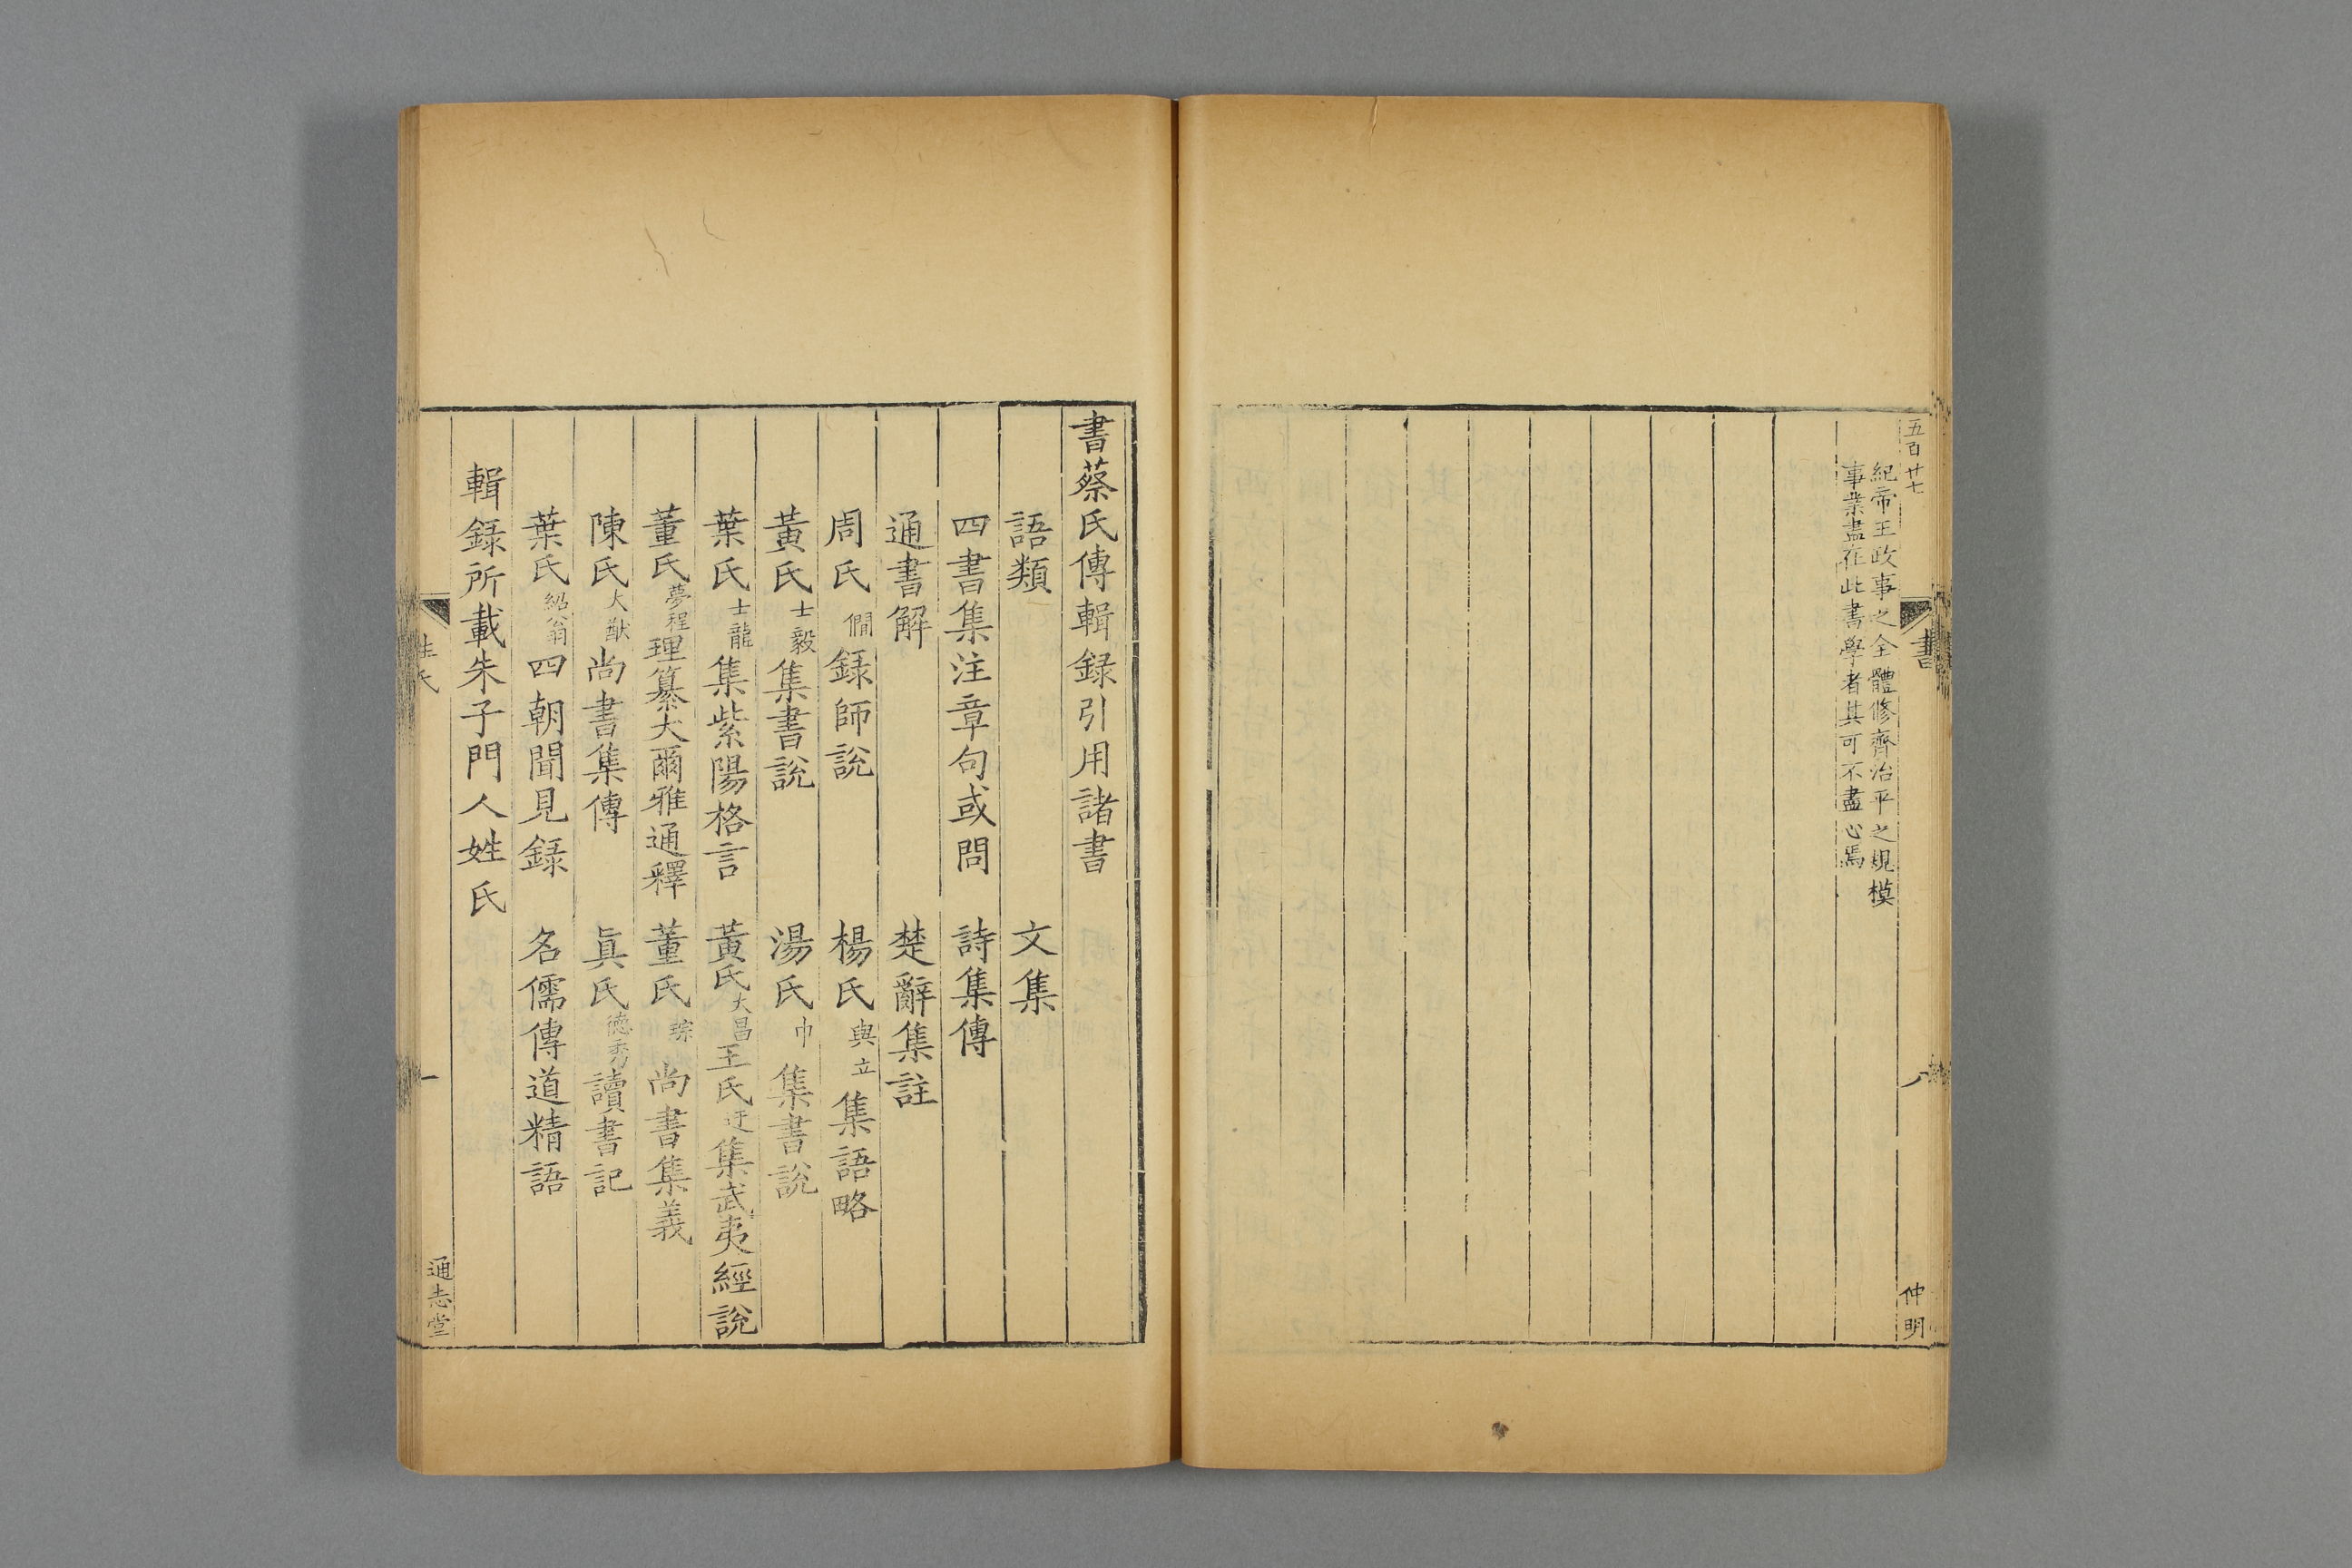 五百廿七
紀帝王政事之全體修齊治平之規模
事業盡在此書學者其可不盡心焉
書
八
仲明
書蔡氏傳輯録引用諸書
語類 文集
四書集注章句或問 詩集傳
通書解 楚辭集註
周氏僩録師說 楊氏與立集語略
黃氏士毅集書說 湯氏巾集書說
葉氏士龍集紫陽格言 黃氏大昌王氏迂集武夷經說
董氏夢程理纂大爾雅通釋 董氏琮尚書集義
陳氏大猷尚書集傳 眞氏德秀讀書記
葉氏紹翁四朝聞見録 名儒傳道精語
輯録所載朱子門人姓氏
姓氏
一
通志堂